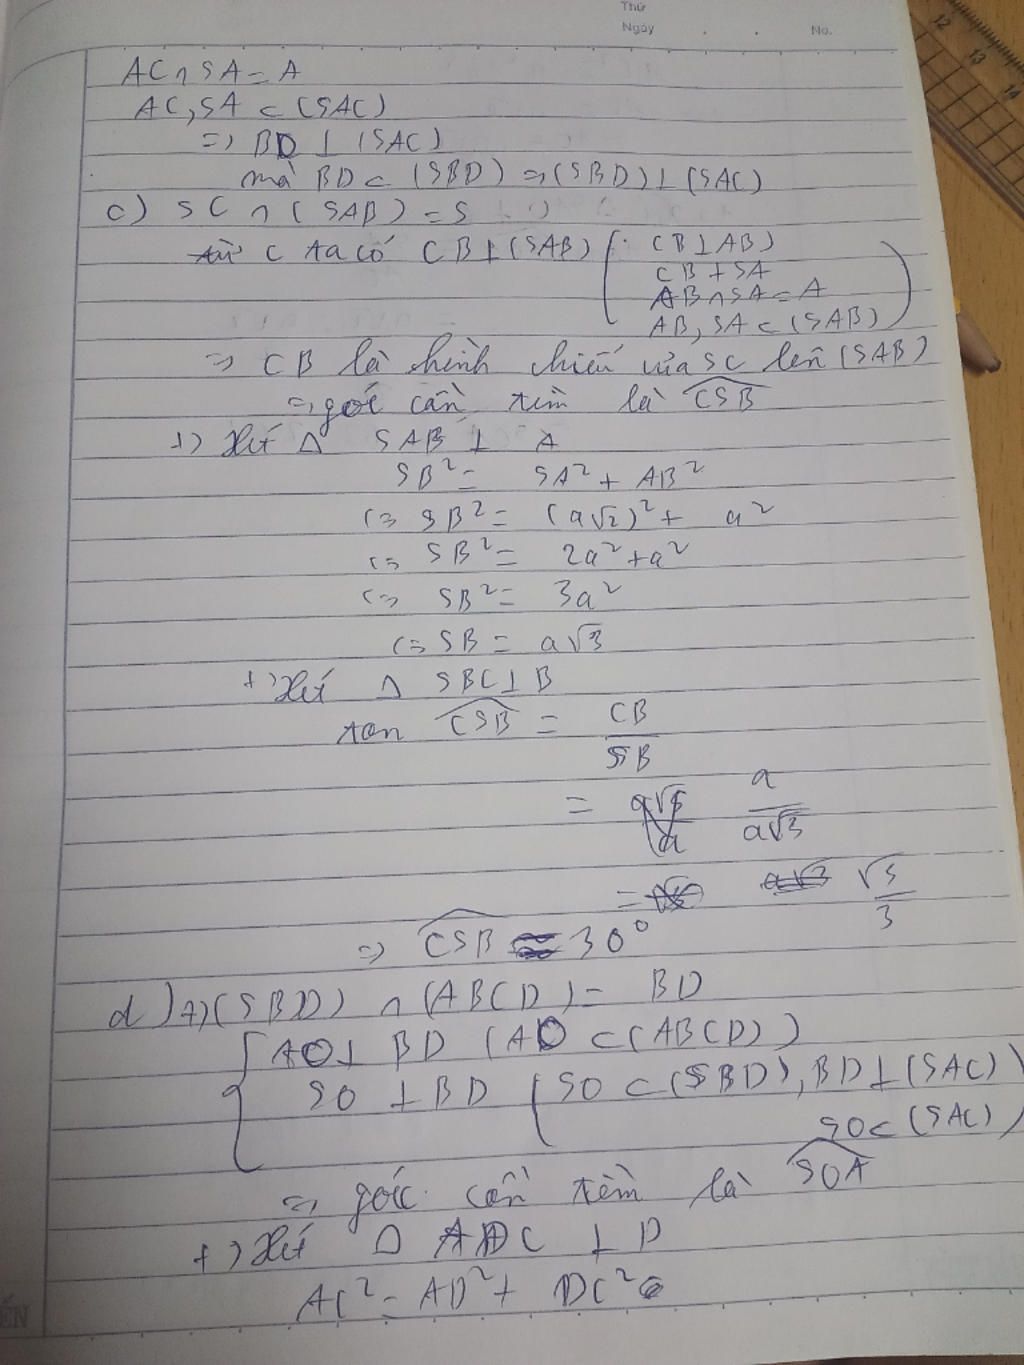 Thứ
Ngày No.
12 13 14
AC ∩ SA = A
AC, SA ⊂ (SAC)
=> BD ⊥ (SAC)
mà BD ⊂ (SBD) => (SBD) ⊥ (SAC)
c) SC ∩ (SAB) = S
từ C ta có CB ⊥ (SAB) ( CB ⊥ AB )
CB ⊥ SA
AB ∩ SA = A
AB, SA ⊂ (SAB)
=> CB là hình chiếu của SC lên (SAB)
=> góc cần tìm là CSB
+) Xét Δ SAB ⊥ A
SB² = SA² + AB²
<=> SB² = (a√2)² + a²
<=> SB² = 2a² + a²
<=> SB² = 3a²
<=> SB = a√3
+) Xét Δ SBC ⊥ B
tan CSB = CB / SB
= a / a√3
= √3 / 3
=> CSB = 30°
d) +) (SBD) ∩ (ABCD) = BD
{ AO ⊥ BD (AO ⊂ (ABCD))
SO ⊥ BD ( SO ⊂ (SBD), BD ⊥ (SAC)
SO ⊂ (SAC)
=> góc cần tìm là SOA
+) Xét Δ ADC ⊥ D
AC² = AD² + DC²